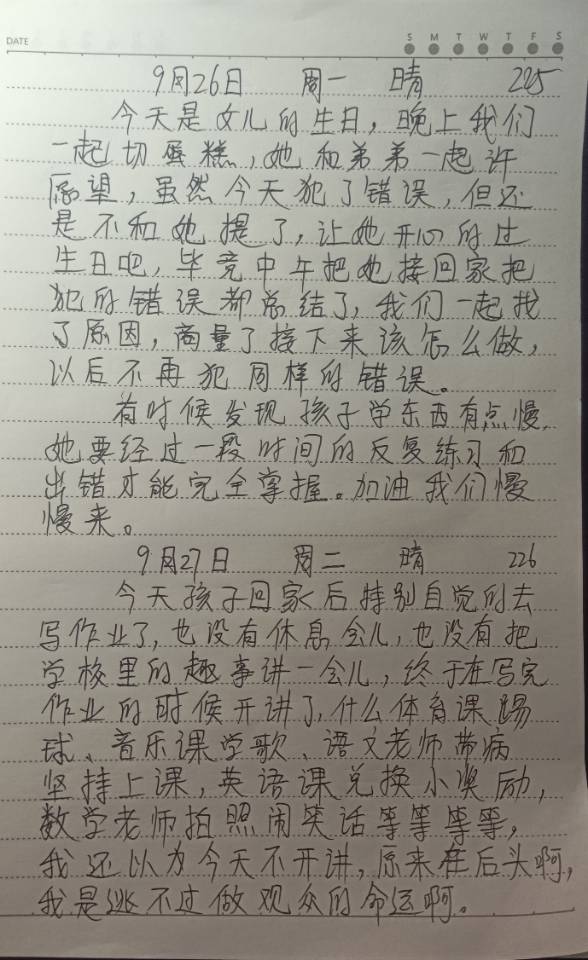 DATE
S M T W T F S
9月26日 周一 晴 225
今天是女儿的生日，晚上我们
一起切蛋糕，她和弟弟一起许
愿望，虽然今天犯了错误，但还
是不和她提了，让她开心的过
生日吧，毕竟中午把她接回家把
犯的错误都总结了，我们一起找
了原因，商量了接下来该怎么做，
以后不再犯同样的错误。
有时候发现孩子学东西有点慢，
她要经过一段时间的反复练习和
出错才能完全掌握。加油我们慢
慢来。
9月27日 周二 晴 226
今天孩子回家后特别自觉的去
写作业了，也没有休息会儿，也没有把
学校里的趣事讲一会儿，终于在写完
作业的时候开讲了，什么体育课踢
球、音乐课学歌、语文老师带病
坚持上课，英语课兑换小奖励，
数学老师拍照闹笑话等等等等，
我还以为今天不开讲，原来在后头啊，
我是逃不过做观众的命运啊。